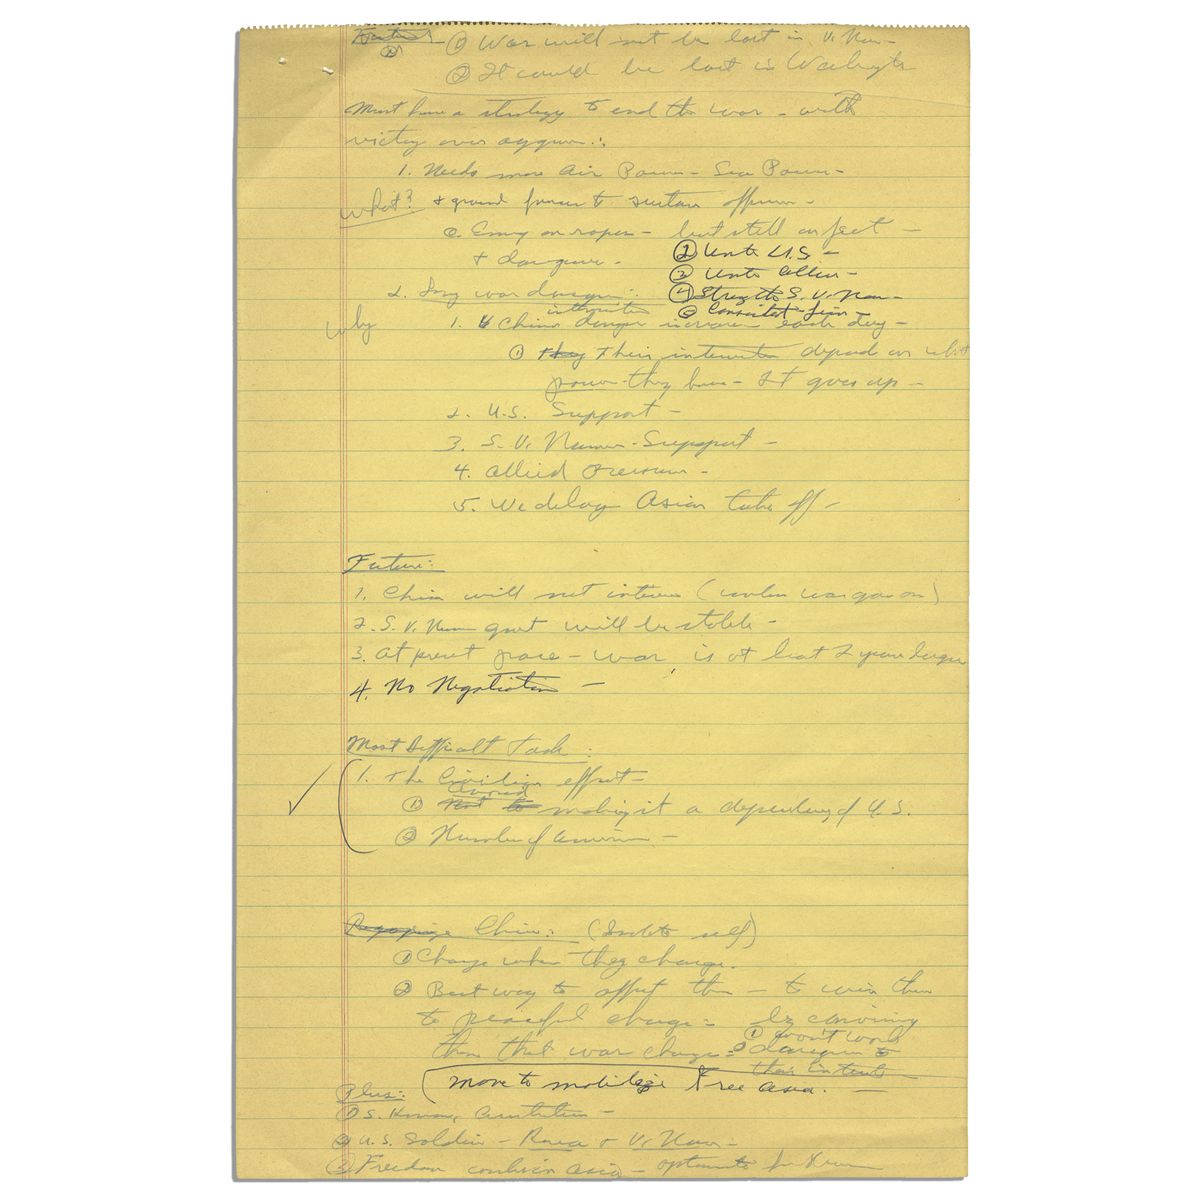 ① War will not be lost in V. Nam -
② It could be lost in Washington
Must have a strategy to end the war - with
victory over aggression:
1. Needs more air Power - Sea Power -
What? + ground forces to sustain offensive -
Enemy on ropes - but still on feet -
+ dangerous -
② Unite U.S -
③ Unite Allies -
2. Long war dangers:
④ Strengthen S. V. Nam -
Consistent - firm -
intervention
Why 1. China danger increases each day -
① Their intervention depends on what
power they have - It goes up -
2. U.S. Support -
3. S. V. Namese Support -
4. Allied
5. We delay Asian take off -
Future:
1. China will not intervene (unless war goes on)
2. S. V. Nam govt will be stable -
3. At present pace - war is at least 2 years longer
4. No Negotiation -
Most Difficult Task:
1. The Civilian effort -
① making it a dependency of U.S.
② Number of Americans -
China: ( self)
① Change when they change.
② Best way to affect them - to win them
to peaceful change - by convincing
them that war change =
① won't work
② dangerous to
their interests
Move to mobilize Free Asia. -
Plus:
① S. Korean contribution -
② U.S. Soldier - Korea + V. Nam -
③ Freedom in Asia -